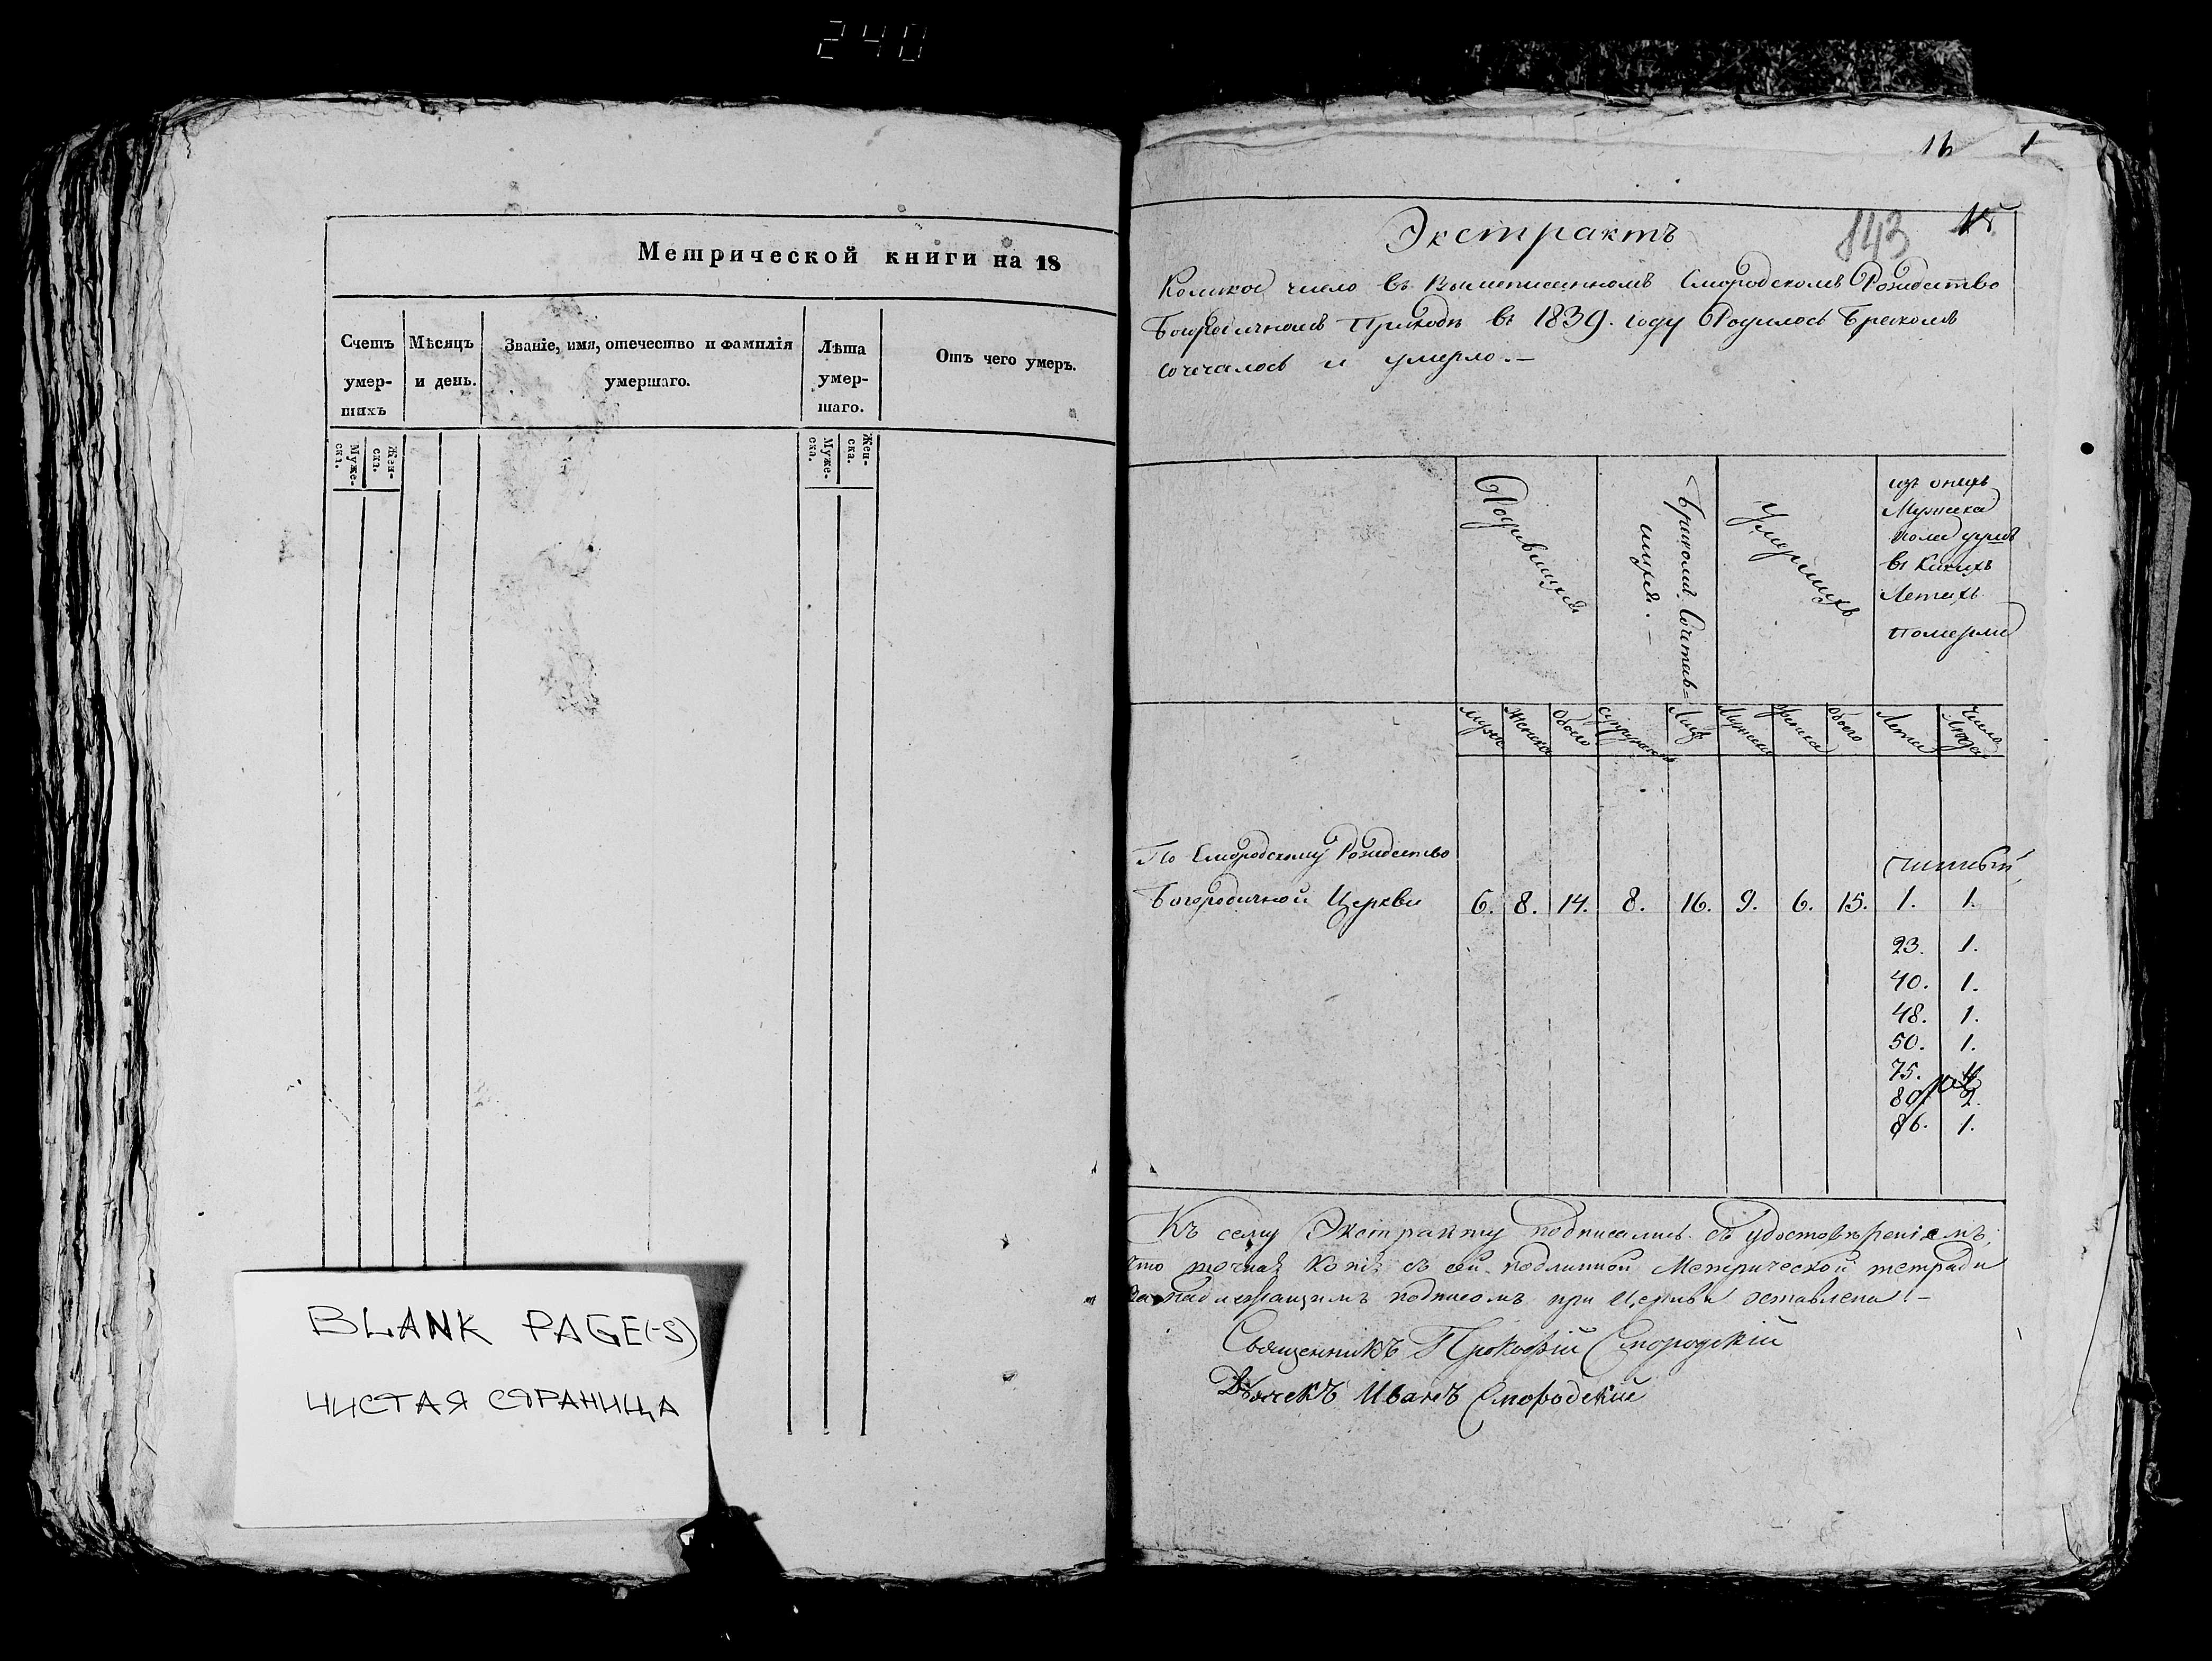 240
Метрической книги на 18
Счетъ умер- шихъ
Мѣсяцъ и день.
Званіе, имя, отечество и фамилія умершаго.
Лѣта умер- шаго.
Отъ чего умеръ.
Муже- ска.
Жен- ска.
Муже- ска.
Жен- ска.
BLANK PAGE(-S)
ЧИСТАЯ СТРАНИЦА
16 1
143 15
Экстрактъ
Коликое число въ вышеписанномъ Смородскомъ Рождество
Богородичномъ Приходѣ въ 1839. году Родилось Бракомъ
сочеталось и умерло.—
Родившихся
Бракомъ Сочетав=
шихся.—
Умершихъ
изъ онихъ
Мужеска
пола душъ
въ какихъ
Летахъ
померли
мужеска
женска
обоего
супружествъ
Лицъ
Мужеска
женска
обоего
Лета
число
людей
По Смородскому Рождество
Богородичной Церкви 6. 8. 14. 8. 16. 9. 6. 15. 1. 1.
23. 1.
40. 1.
48. 1.
50. 1.
75. 1.
80. 2.
86. 1.
Къ сему Экстракту подписались съ удостовѣреніемъ,
что точная копія съ сей подлинной Метрической тетради
за надлежащимъ подписомъ при Церкви оставлена.—
Священникъ Прокофій Смородскій
Дьячекъ Иванъ Смородскій